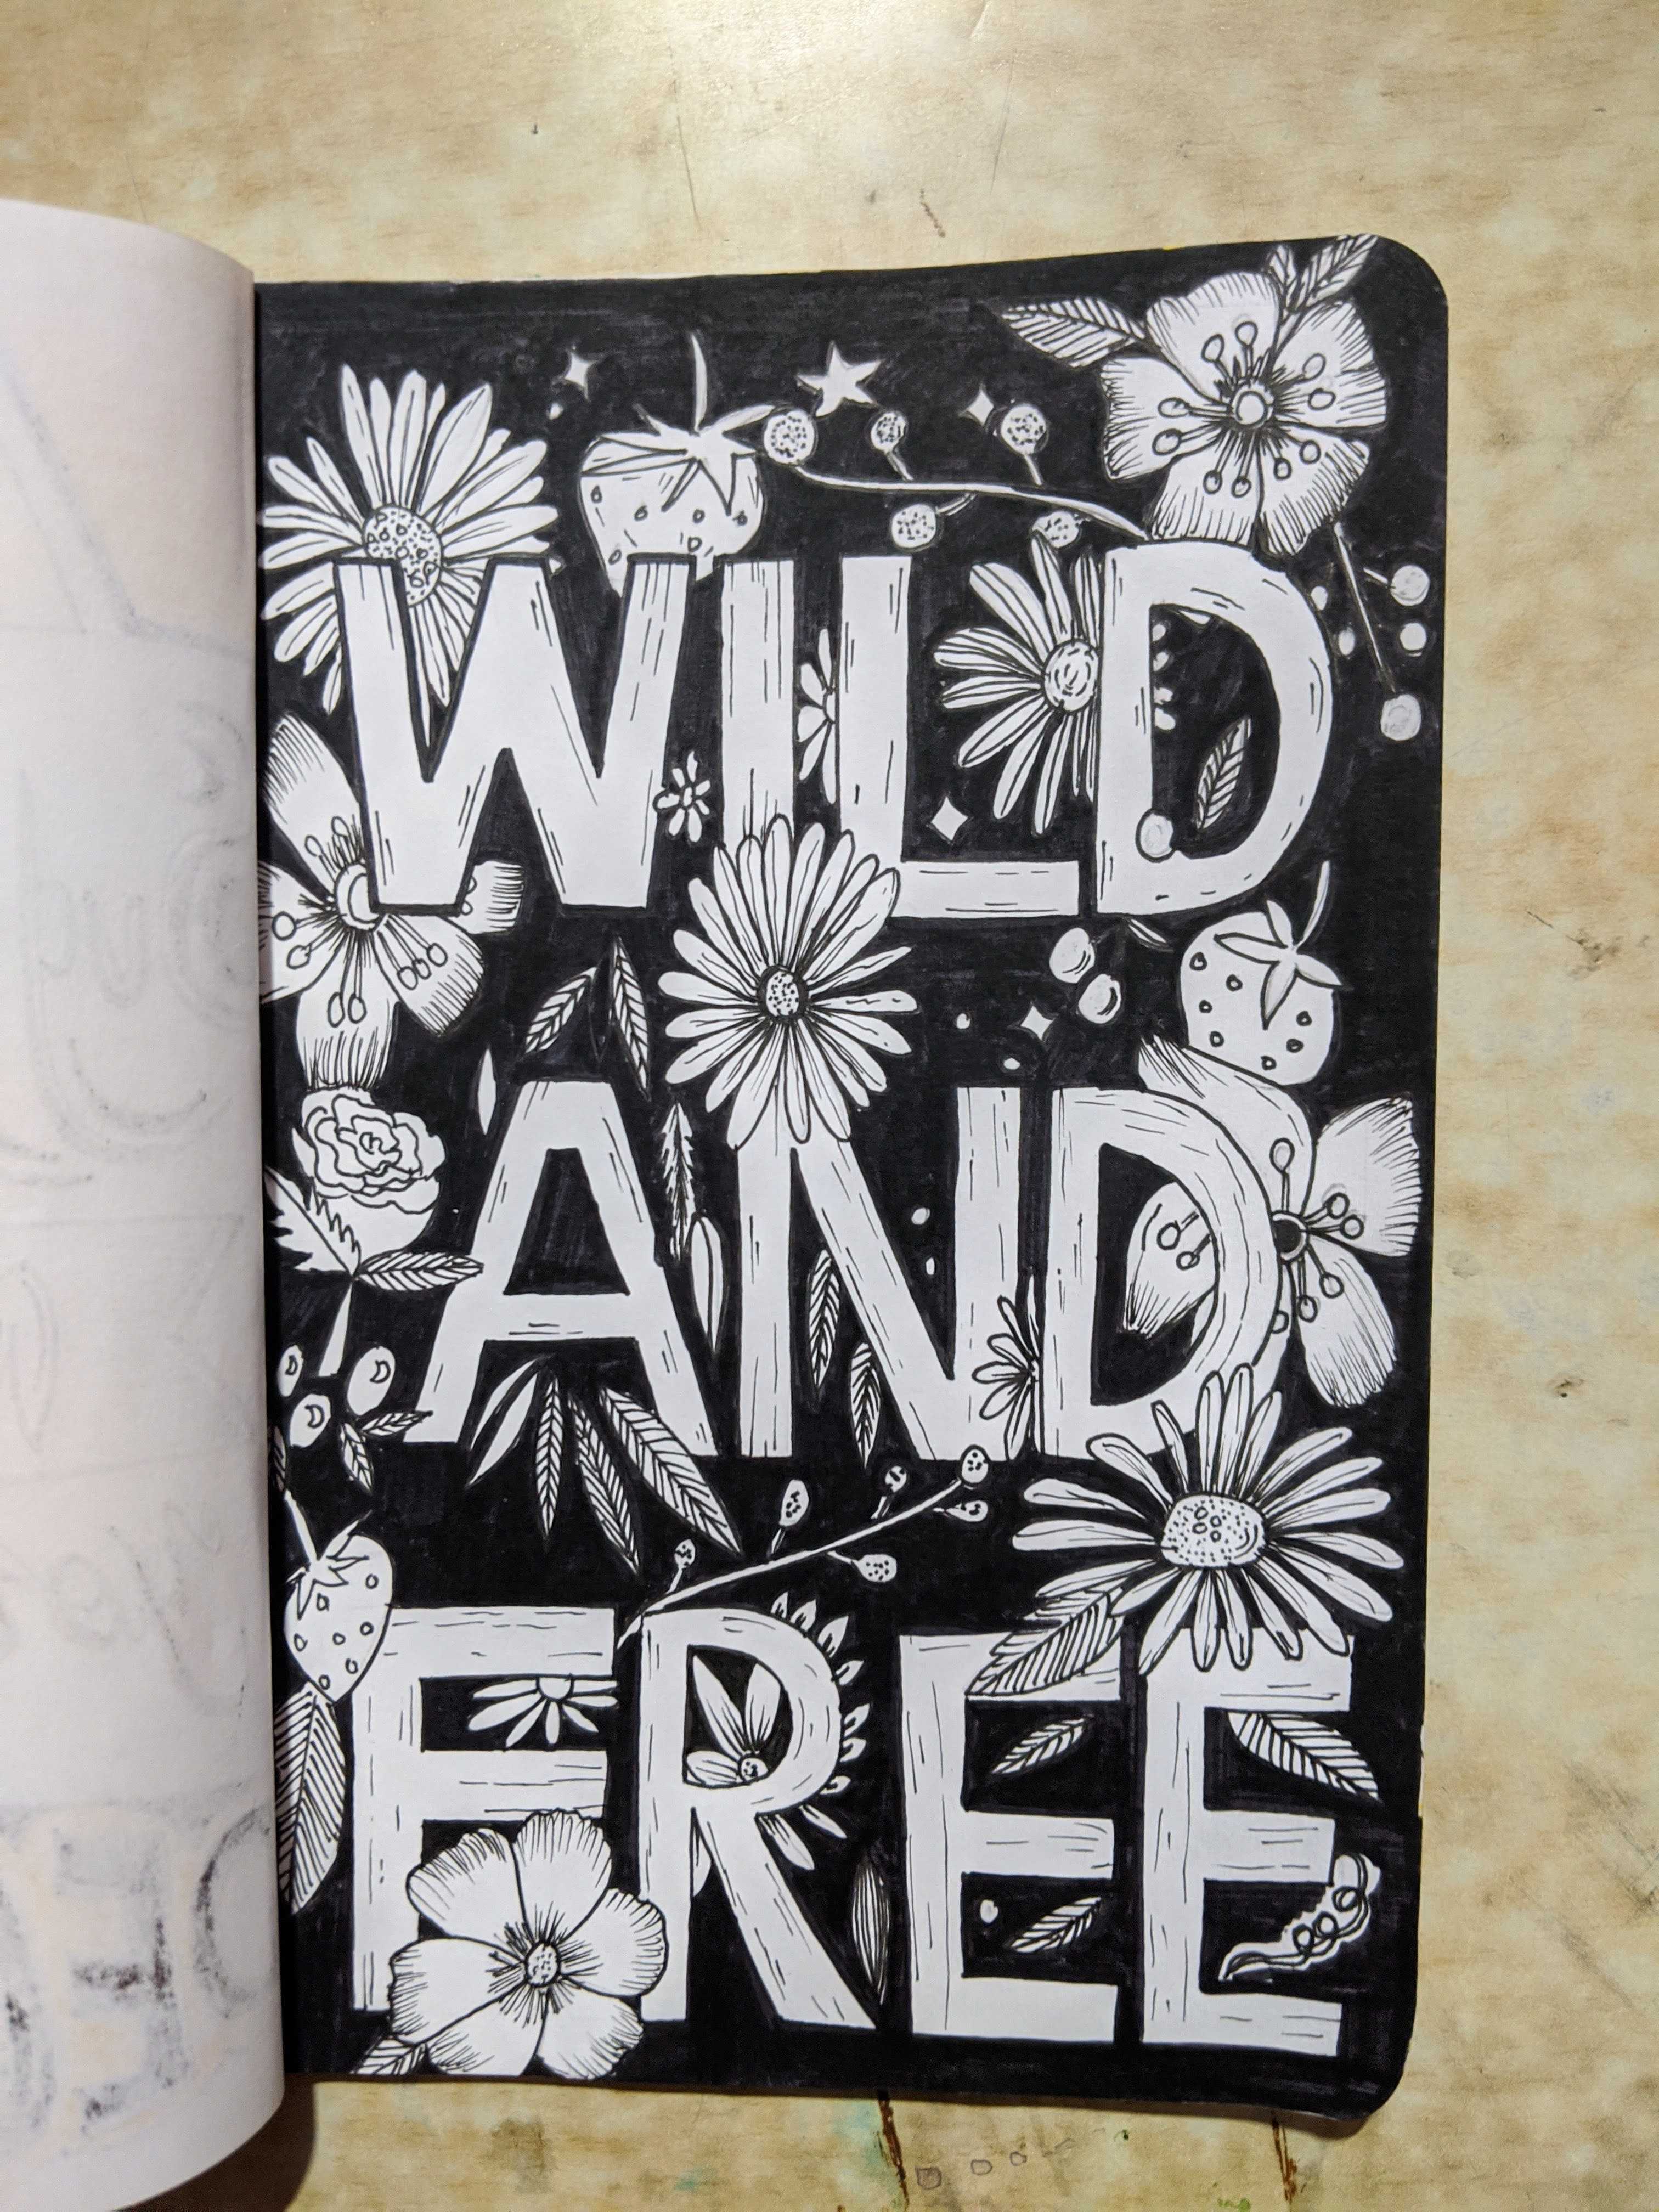 WILD
AND
FREE